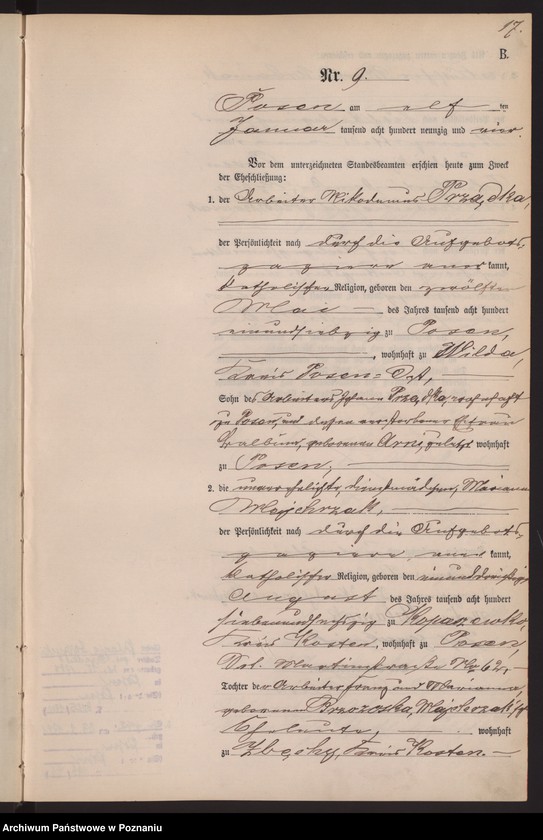 17.
B.
Nr. 9.
Posen am elf ten
Januar tausend acht hundert neunzig und vier.
Vor dem unterzeichneten Standesbeamten erschien heute zum Zweck
der Eheschließung:
1. der Arbeiter Nikodemus Prządka,
der Persönlichkeit nach durch die Aufgebots-
papiere aner kannt,
katholischer Religion, geboren den zwölften
Mai des Jahres tausend acht hundert
einundsiebzig zu Posen,
, wohnhaft zu Wilda,
Kreis Posen-Ost,
Sohn des Arbeiters Johann Prządka, wohnhaft
zu Posen, und dessen verstorbener Ehefrau
geborenen zuletzt wohnhaft
zu Posen,
2. die unverehelichte, Dienstmädchen, Marianna
Majchrzak,
der Persönlichkeit nach durch die Aufgebots-
papiere aner kannt,
katholischer Religion, geboren den einunddreißigsten
August des Jahres tausend acht hundert
siebenundsechzig zu Kopaszewko,
Kreis Kosten, wohnhaft zu Posen,
Skt. Martinstraße No 62,
Tochter der Arbeiter Franz und Marianna,
geborenen Majchrzak'schen
Eheleute, wohnhaft
zu Zbęchy, Kreis Kosten.
Archiwum Państwowe w Poznaniu